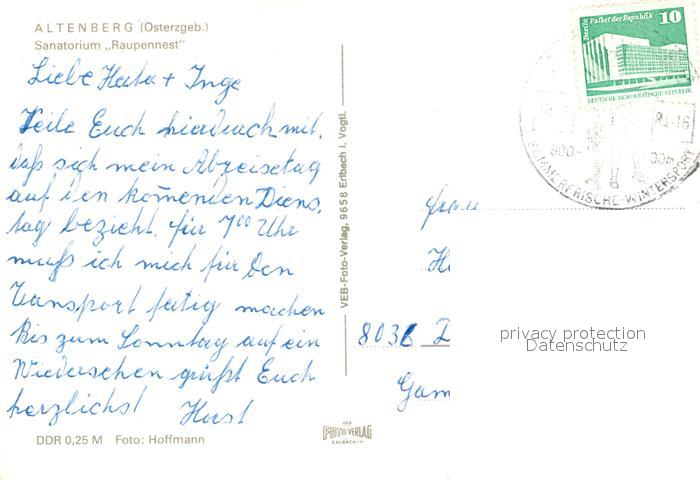 ALTENBERG (Osterzgeb.)
Sanatorium „Raupennest"
Liebe Hata + Inge
Teile Euch hierdurch mit,
daß sich mein Abreisetag
auf den kom̄enden Diens,
tag bezieht. Für 7⁰⁰ Uhr
muß ich mich für den
Transport fertig machen
Bis zum Sonntag auf ein
Wiedersehen grüßt Euch
herzlichst Horst
DDR 0,25 M Foto: Hoffmann
VEB-Foto-Verlag, 9658 Erlbach i. Vogtl.
VEB
FOTO VERLAG
ERLBACH/V.
Berlin Palast der Republik 10
DEUTSCHE DEMOKRATISCHE REPUBLIK
-16
800-
00m
SOMMERFRISCHE-WINTERSPORT
Frau
8036 D
privacy protection
Datenschutz